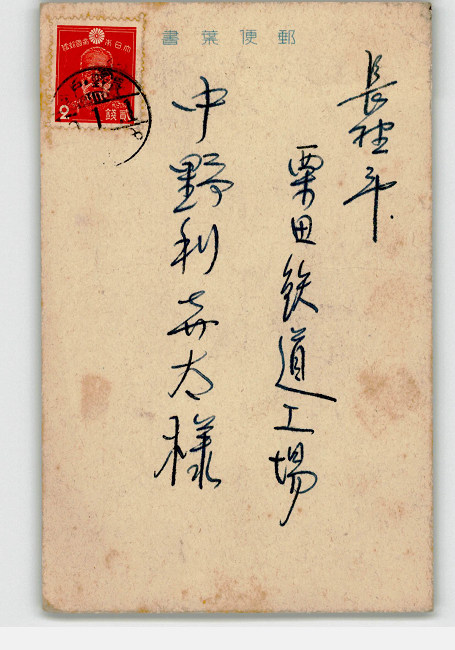 書葉便郵
大日本帝國郵便
2
銭貳
長野市
栗田鉄道工場
中野利喜太様